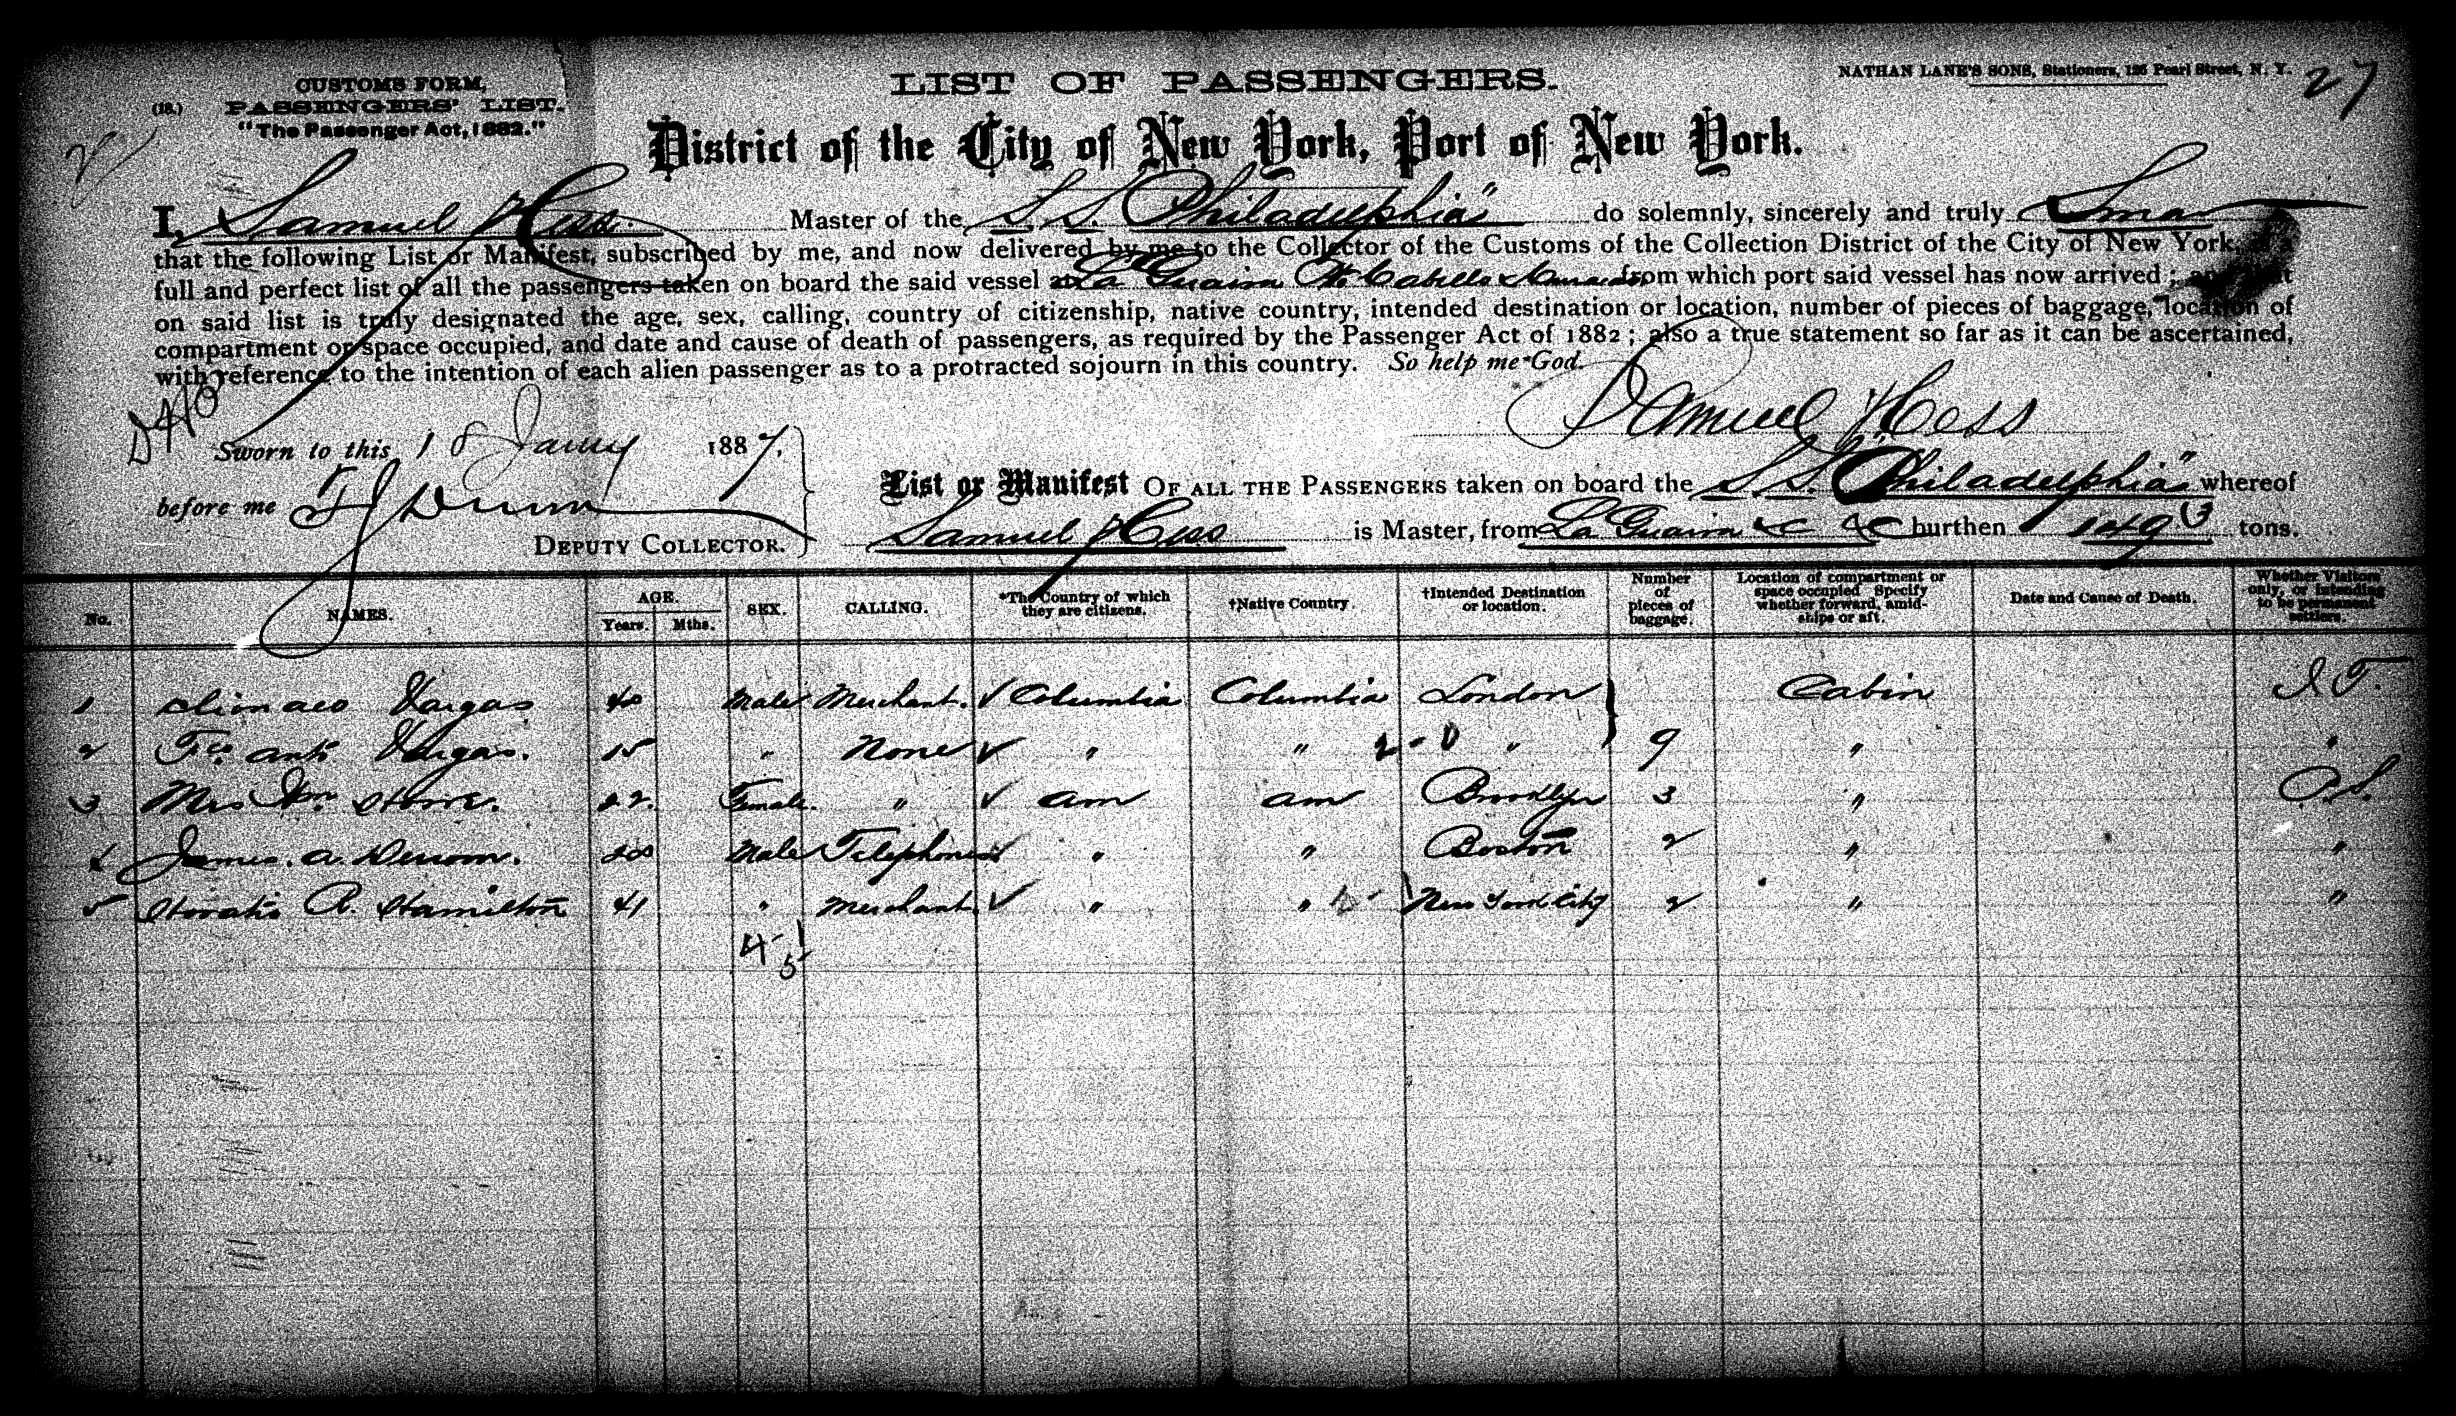 CUSTOMS FORM,
(18.) PASSENGERS' LIST.
"The Passenger Act, 1882."
LIST OF PASSENGERS.
NATHAN LANE'S SONS, Stationers, 125 Pearl Street, N. Y.
27
District of the City of New York, Port of New York.
I, Samuel Hess Master of the S.S. "Philadelphia" do solemnly, sincerely and truly Swear
that the following List or Manifest, subscribed by me, and now delivered by me to the Collector of the Customs of the Collection District of the City of New York, is a
full and perfect list of all the passengers taken on board the said vessel at La Guaira Pto Cabello & from which port said vessel has now arrived; and that
on said list is truly designated the age, sex, calling, country of citizenship, native country, intended destination or location, number of pieces of baggage, location of
compartment or space occupied, and date and cause of death of passengers, as required by the Passenger Act of 1882; also a true statement so far as it can be ascertained,
with reference to the intention of each alien passenger as to a protracted sojourn in this country. So help me God.
Samuel Hess
Sworn to this 18 Jany 1887.
before me
DEPUTY COLLECTOR.
List or Manifest OF ALL THE PASSENGERS taken on board the S.S. "Philadelphia" whereof
Samuel Hess is Master, from La Guaira &c &c burthen tons.
No. NAMES. AGE. Years. Mths. SEX. CALLING. *The Country of which they are citizens. †Native Country †Intended Destination or location. Number of pieces of baggage. Location of compartment or space occupied Specify whether forward, amidships or aft. Date and Cause of Death. Whether Visitors only, or intending to be permanent settlers.
1 Vargas 40 Male Merchant. Columbia Columbia London Cabin I T.
2 Fco. ant Vargas. 15 " None " " " 9 " "
3 Mrs Wm 22. Female. " am am Brooklyn 3 " P.S.
4 James. A 28 Male " " Boston 2 " "
5 Horatio R. Hamilton 41 " Merchant. " " New York City 2 " "
4 1
5